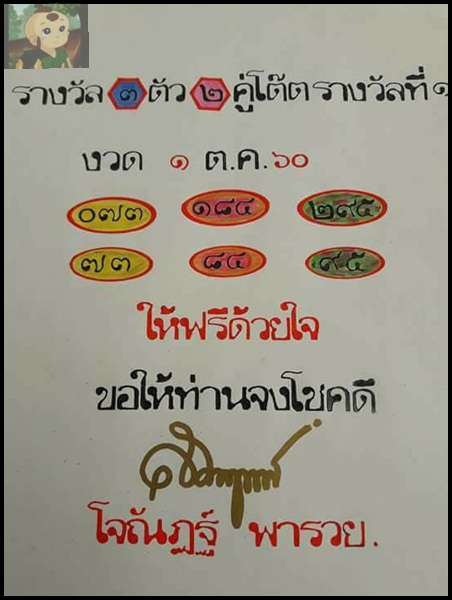 รางวัล ๓ ตัว ๒ คู่โต๊ต รางวัลที่ ๑
งวด ๑ ต.ค. ๖๐
๐๗๓ ๑๘๔ ๒๙๕
๗๓ ๘๔ ๙๕
ให้ฟรีด้วยใจ
ขอให้ท่านจงโชคดี
โจณัฏฐ์ พารวย.